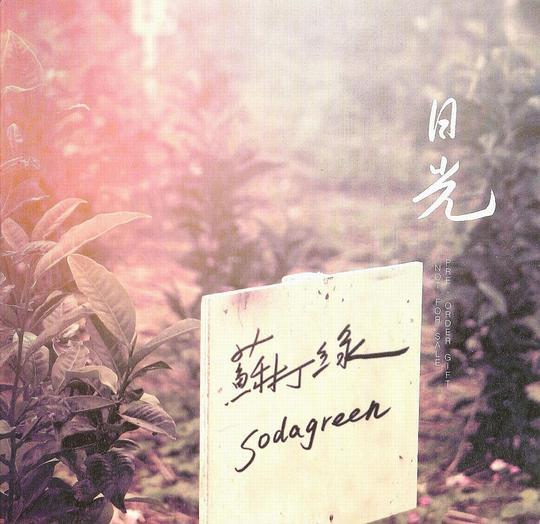 日光
PRE-ORDER GIFT
NOT FOR SALE
蘇打綠
sodagreen